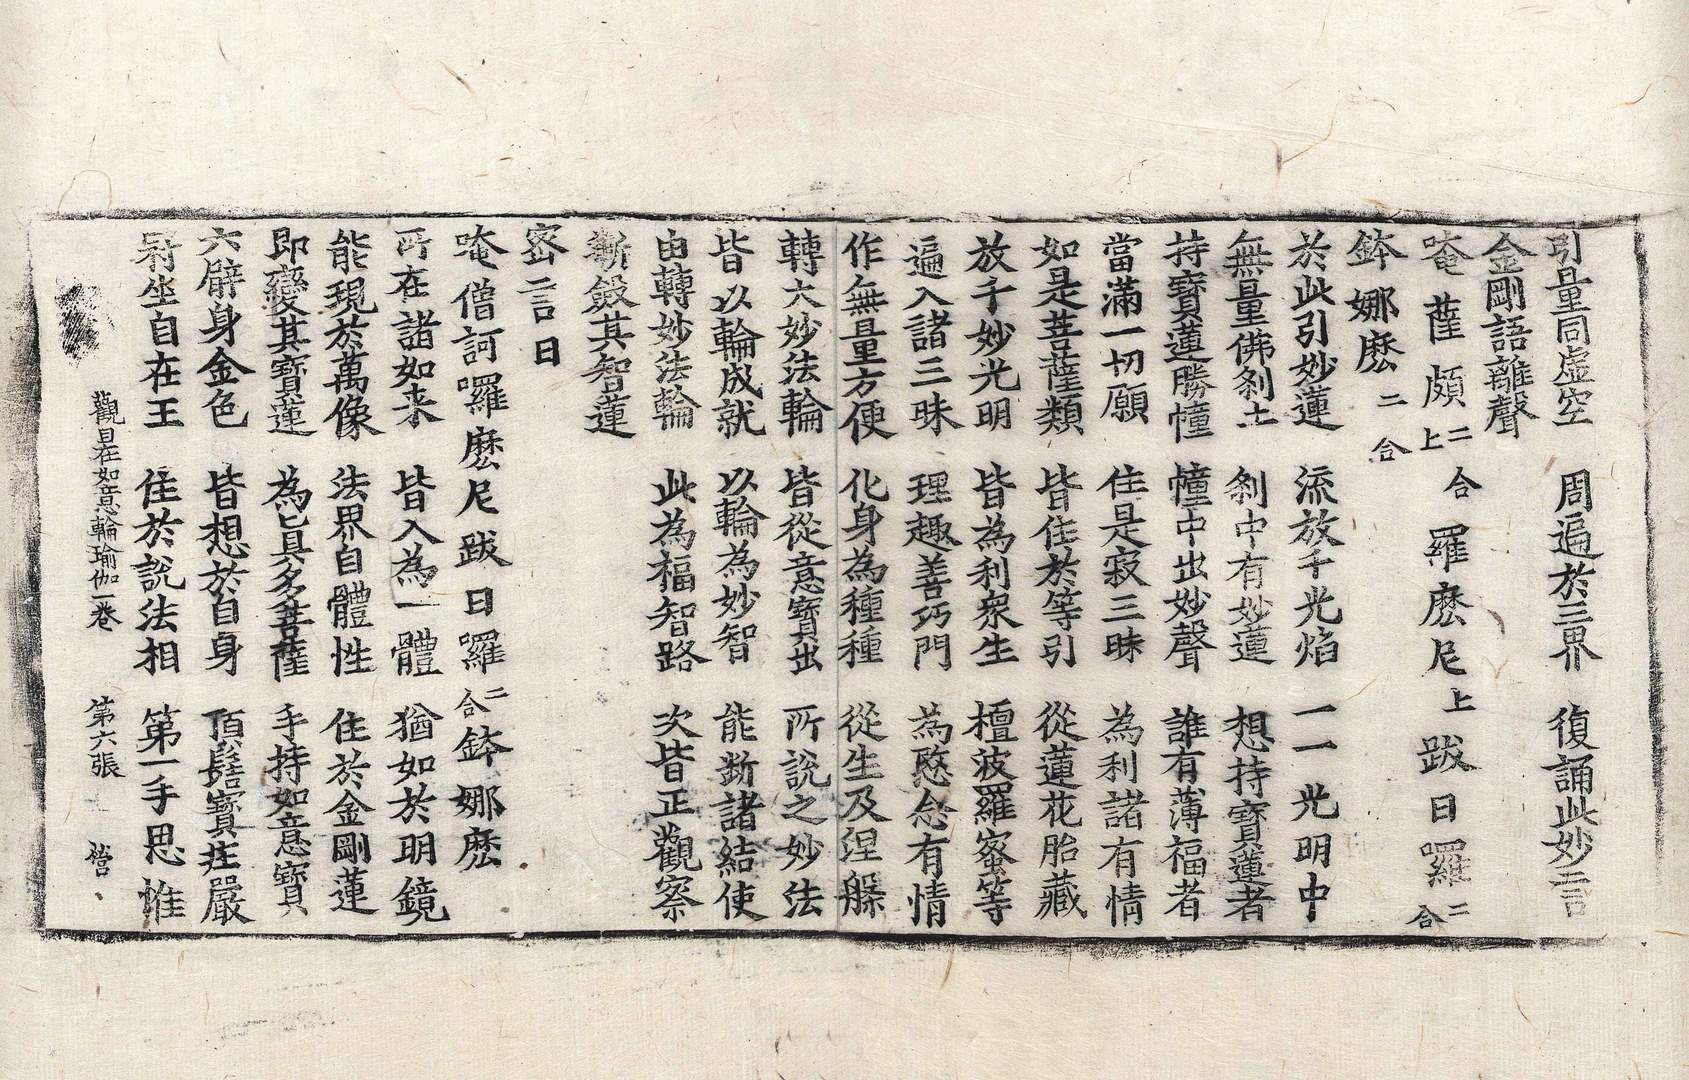 引量同虛空　周遍於三界　復誦此妙言
金剛語離聲
唵薩頗二合上羅麽尼上跋日囉二合
鉢娜麽二合
於此引妙蓮　流放千光焰　一一光明中
無量佛剎土　剎中有妙蓮　想持寶蓮者
持寶蓮勝幢　幢中出妙聲　誰有薄福者
當滿一切願　住是寂三昧　為利諸有情
如是菩薩類　皆住於等引　從蓮花胎藏
放千妙光明　皆為利衆生　檀波羅蜜等
遍入諸三昧　理趣善巧門　為愍念有情
作無量方便　化身為種種　從生及涅槃
轉六妙法輪　皆從意寶出　所說之妙法
皆以輪成就　以輪為妙智　能斷諸結使
由轉妙法輪　此為福智路　次皆正觀察
斷斂其智蓮
密言曰
唵僧訶囉麽尼跋日囉二合鉢娜麽
所在諸如来　皆入為一體　猶如於明鏡
能現於萬像　法界自體性　住於金剛蓮
即變其寶蓮　為具多菩薩　手持如意寶
六臂身金色　皆想於自身　頂髻寶莊嚴
冠坐自在王　住於說法相　第一手思惟
觀自在如意輪瑜伽一卷　第六張　營